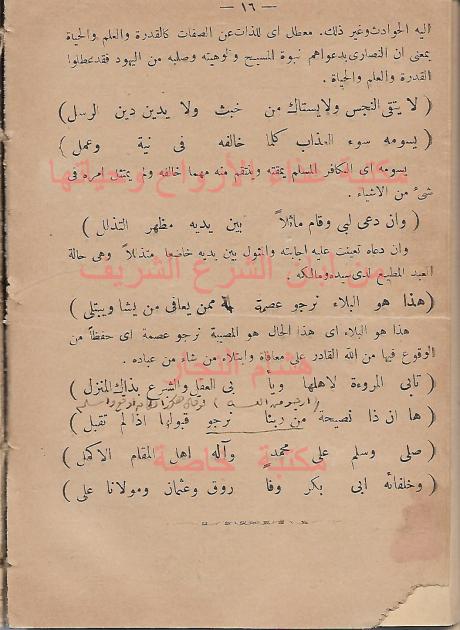 — ١٦ —
اليه الحوادث وغير ذلك . معطل اى للذات عن الصفات كالقدرة والعلم والحياة
بمعنى ان النصارى بدعواهم نبوة المسيح والوهيته وصلبه من اليهود فقد عطلوا
القدرة والعلم والحياة .
( لا يتقى النجس ولا يستاك من خبث ولا يدين دين الرسل )
( يسومه سوء العذاب كلما خالفه فى نية وعمل )
يسومه اى الكافر المسلم يمقته وينتقم منه مهما خالفه ولم يمتثل امره فى
مكتبة غذاء الأرواح وحياتها
شئ من الاشياء .
( وان دعى لبى وقام ماثلاً بين يديه مظهر التذلل )
وان دعاه تعينت عليه اجابته والمثول بين يديه خاضعا متذللاً وهى حالة
من ابان الشرع الشريف
العبد المطيع لدى سيده ومالكه .
( هذا هو البلاء نرجو عصمة ممن يعافى من يشا ويبتلى )
هذا هو البلاء اى هذا الحال هو المصيبة نرجو عصمة اى حفظاً من
الوقوع فيها من الله القادر على معافاة وابتلاء من شاء من عباده .
هشام النجار
( تابى المروءة لاهلها ويا بى العقل والشرع بذاك المنزل )
( ها ان ذا نصيحة من ربنا نرجو قبولها اذا لم تقبل )
( صلى وسلم على محمدٍ وآله اهل المقام الاكمل )
مكتبة خاصة
( وخلفائه ابى بكر وفا روق وعثمان ومولانا على )